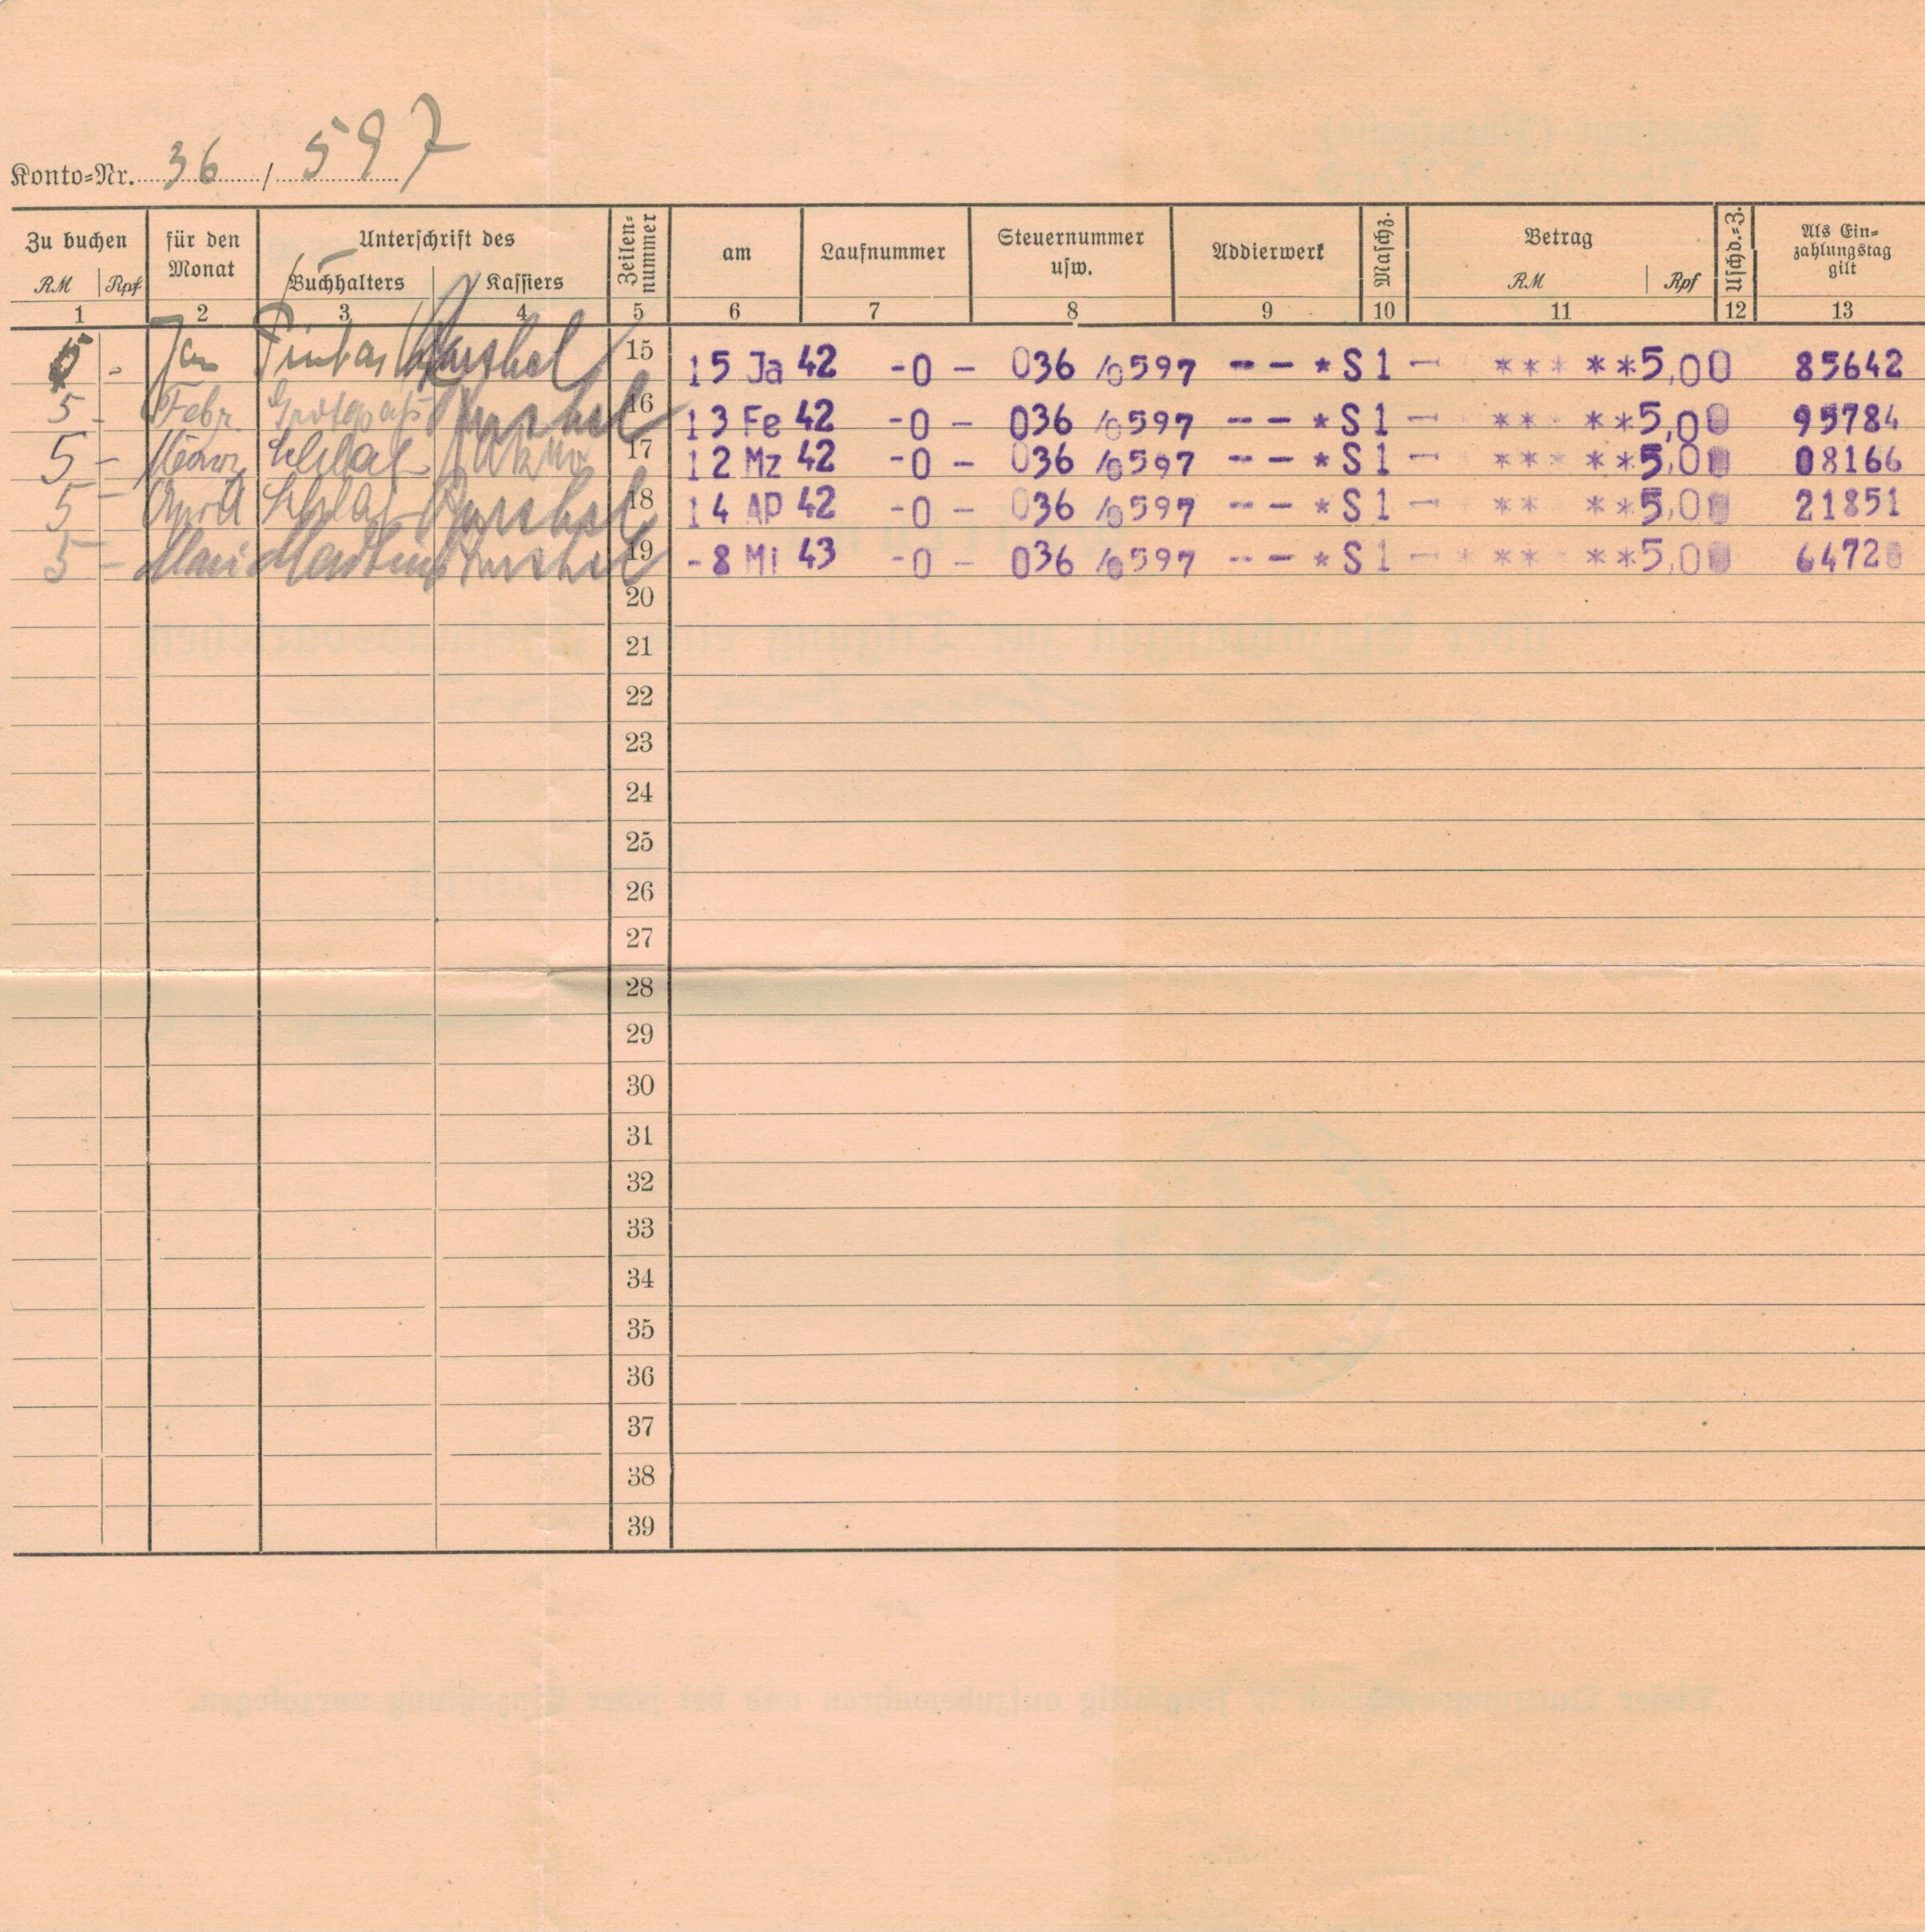 Konto-Nr. 36 / 597
Zu buchen für den Monat Unterschrift des Zeilen-nummer am Laufnummer Steuernummer usw. Addierwerk Maschz. Betrag Uschd.-Z. Als Ein-zahlungstag gilt
RM Rpf Buchhalters Kassiers RM Rpf
1 2 3 4 5 6 7 8 9 10 11 12 13
5 - Jan 15 15 Ja 42 -0 - 036 /0597 -- * S 1 - *** **5,00 85642
5 - Febr. 16 13 Fe 42 -0 - 036 /0597 -- * S 1 - *** **5,00 95784
5 - März 17 12 Mz 42 -0 - 036 /0597 -- * S 1 - *** **5,00 08166
5 - April 18 14 AP 42 -0 - 036 /0597 -- * S 1 - ** **5,00 21851
5 - Mai 19 -8 MI 43 -0 - 036 /0597 -- * S 1 - * ** **5,00 6472
20
21
22
23
24
25
26
27
28
29
30
31
32
33
34
35
36
37
38
39